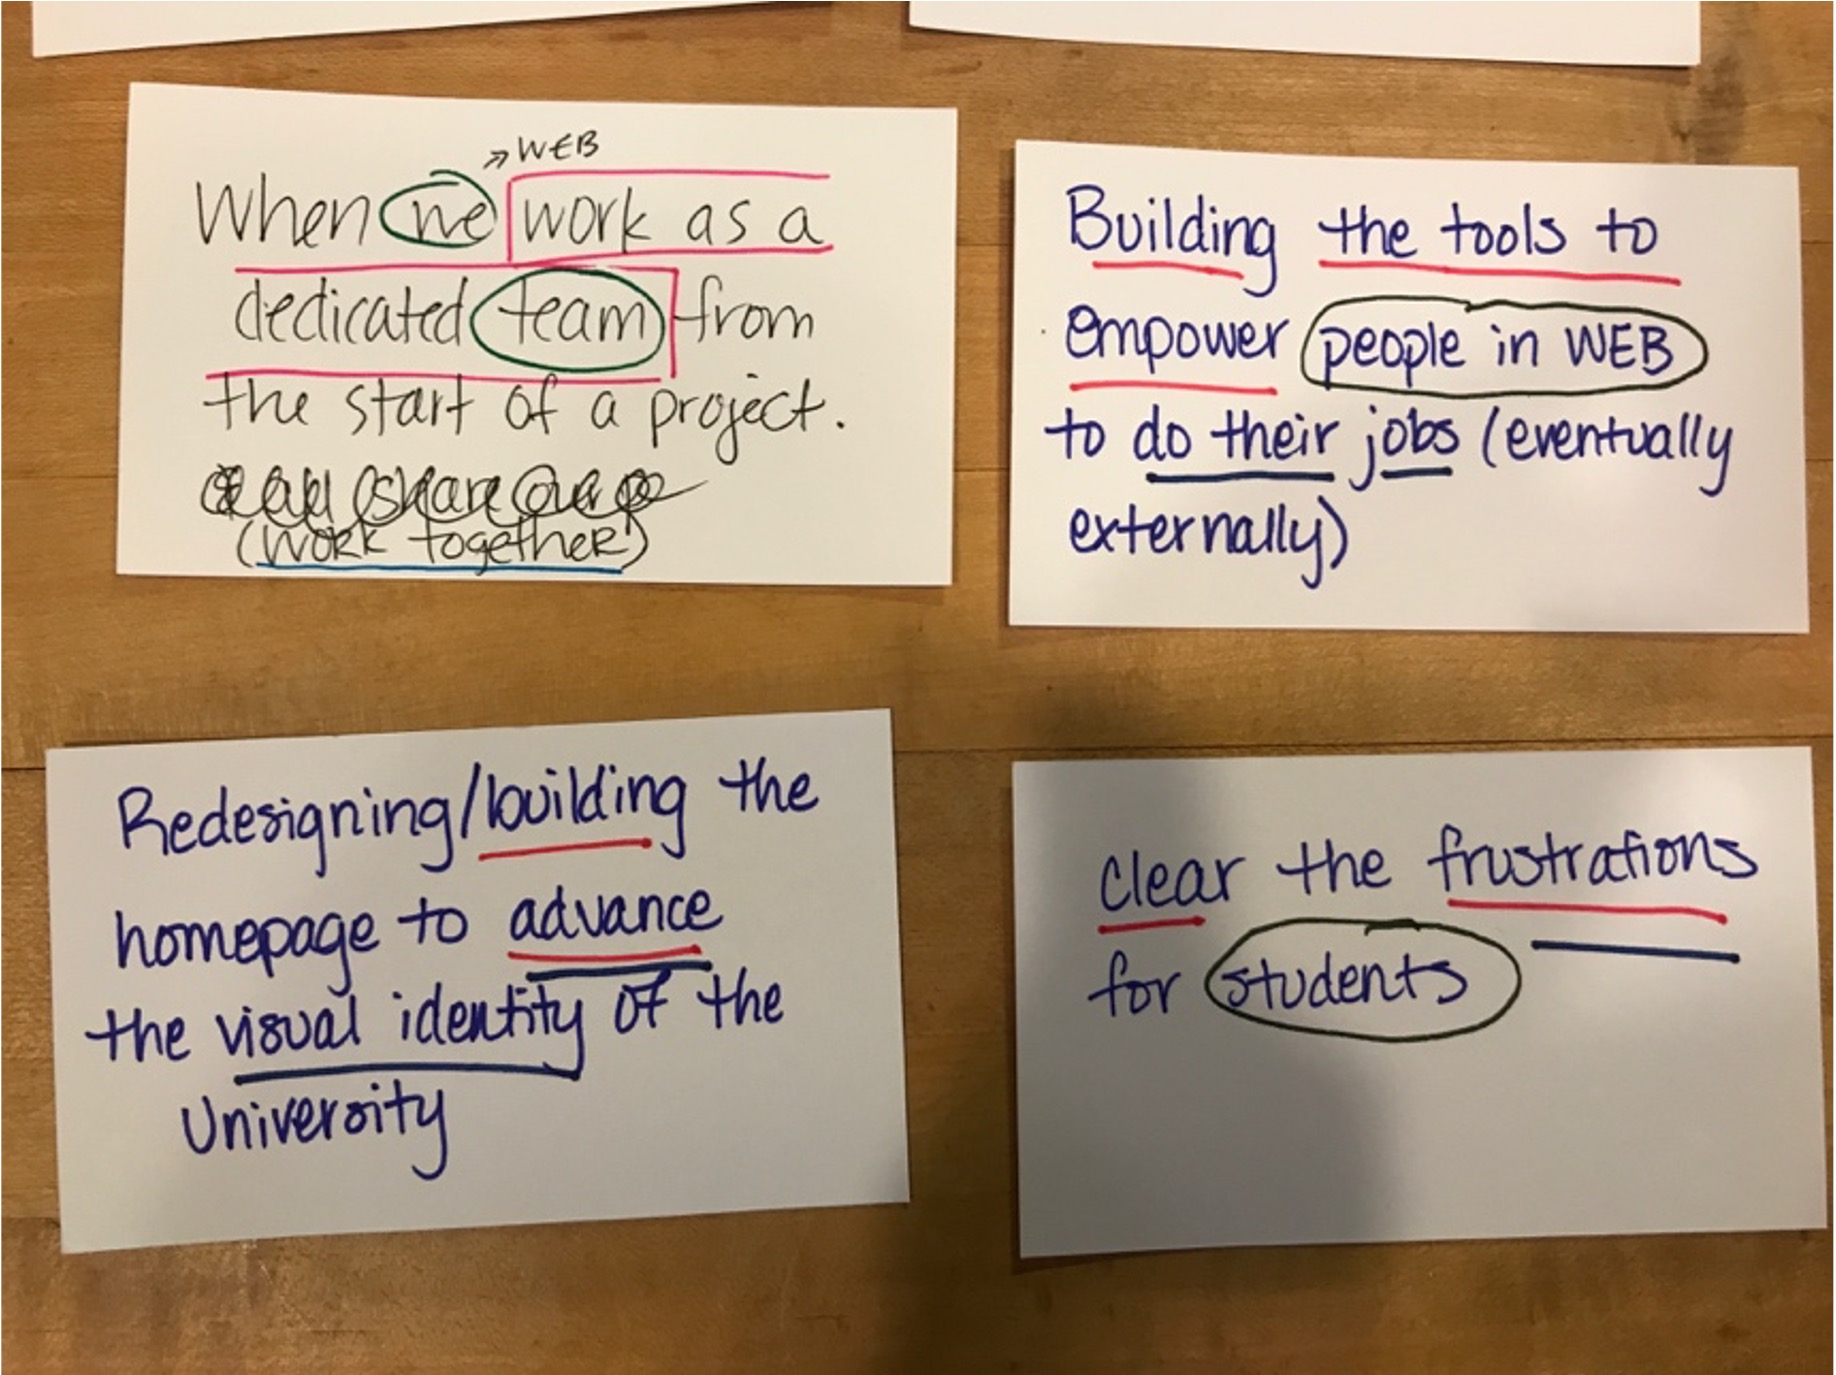 → WEB
When we work as a
dedicated team from
the start of a project.
(work together)
Building the tools to
empower people in WEB
to do their jobs (eventually
externally)
Redesigning/building the
homepage to advance
the visual identity of the
University
clear the frustrations
for students